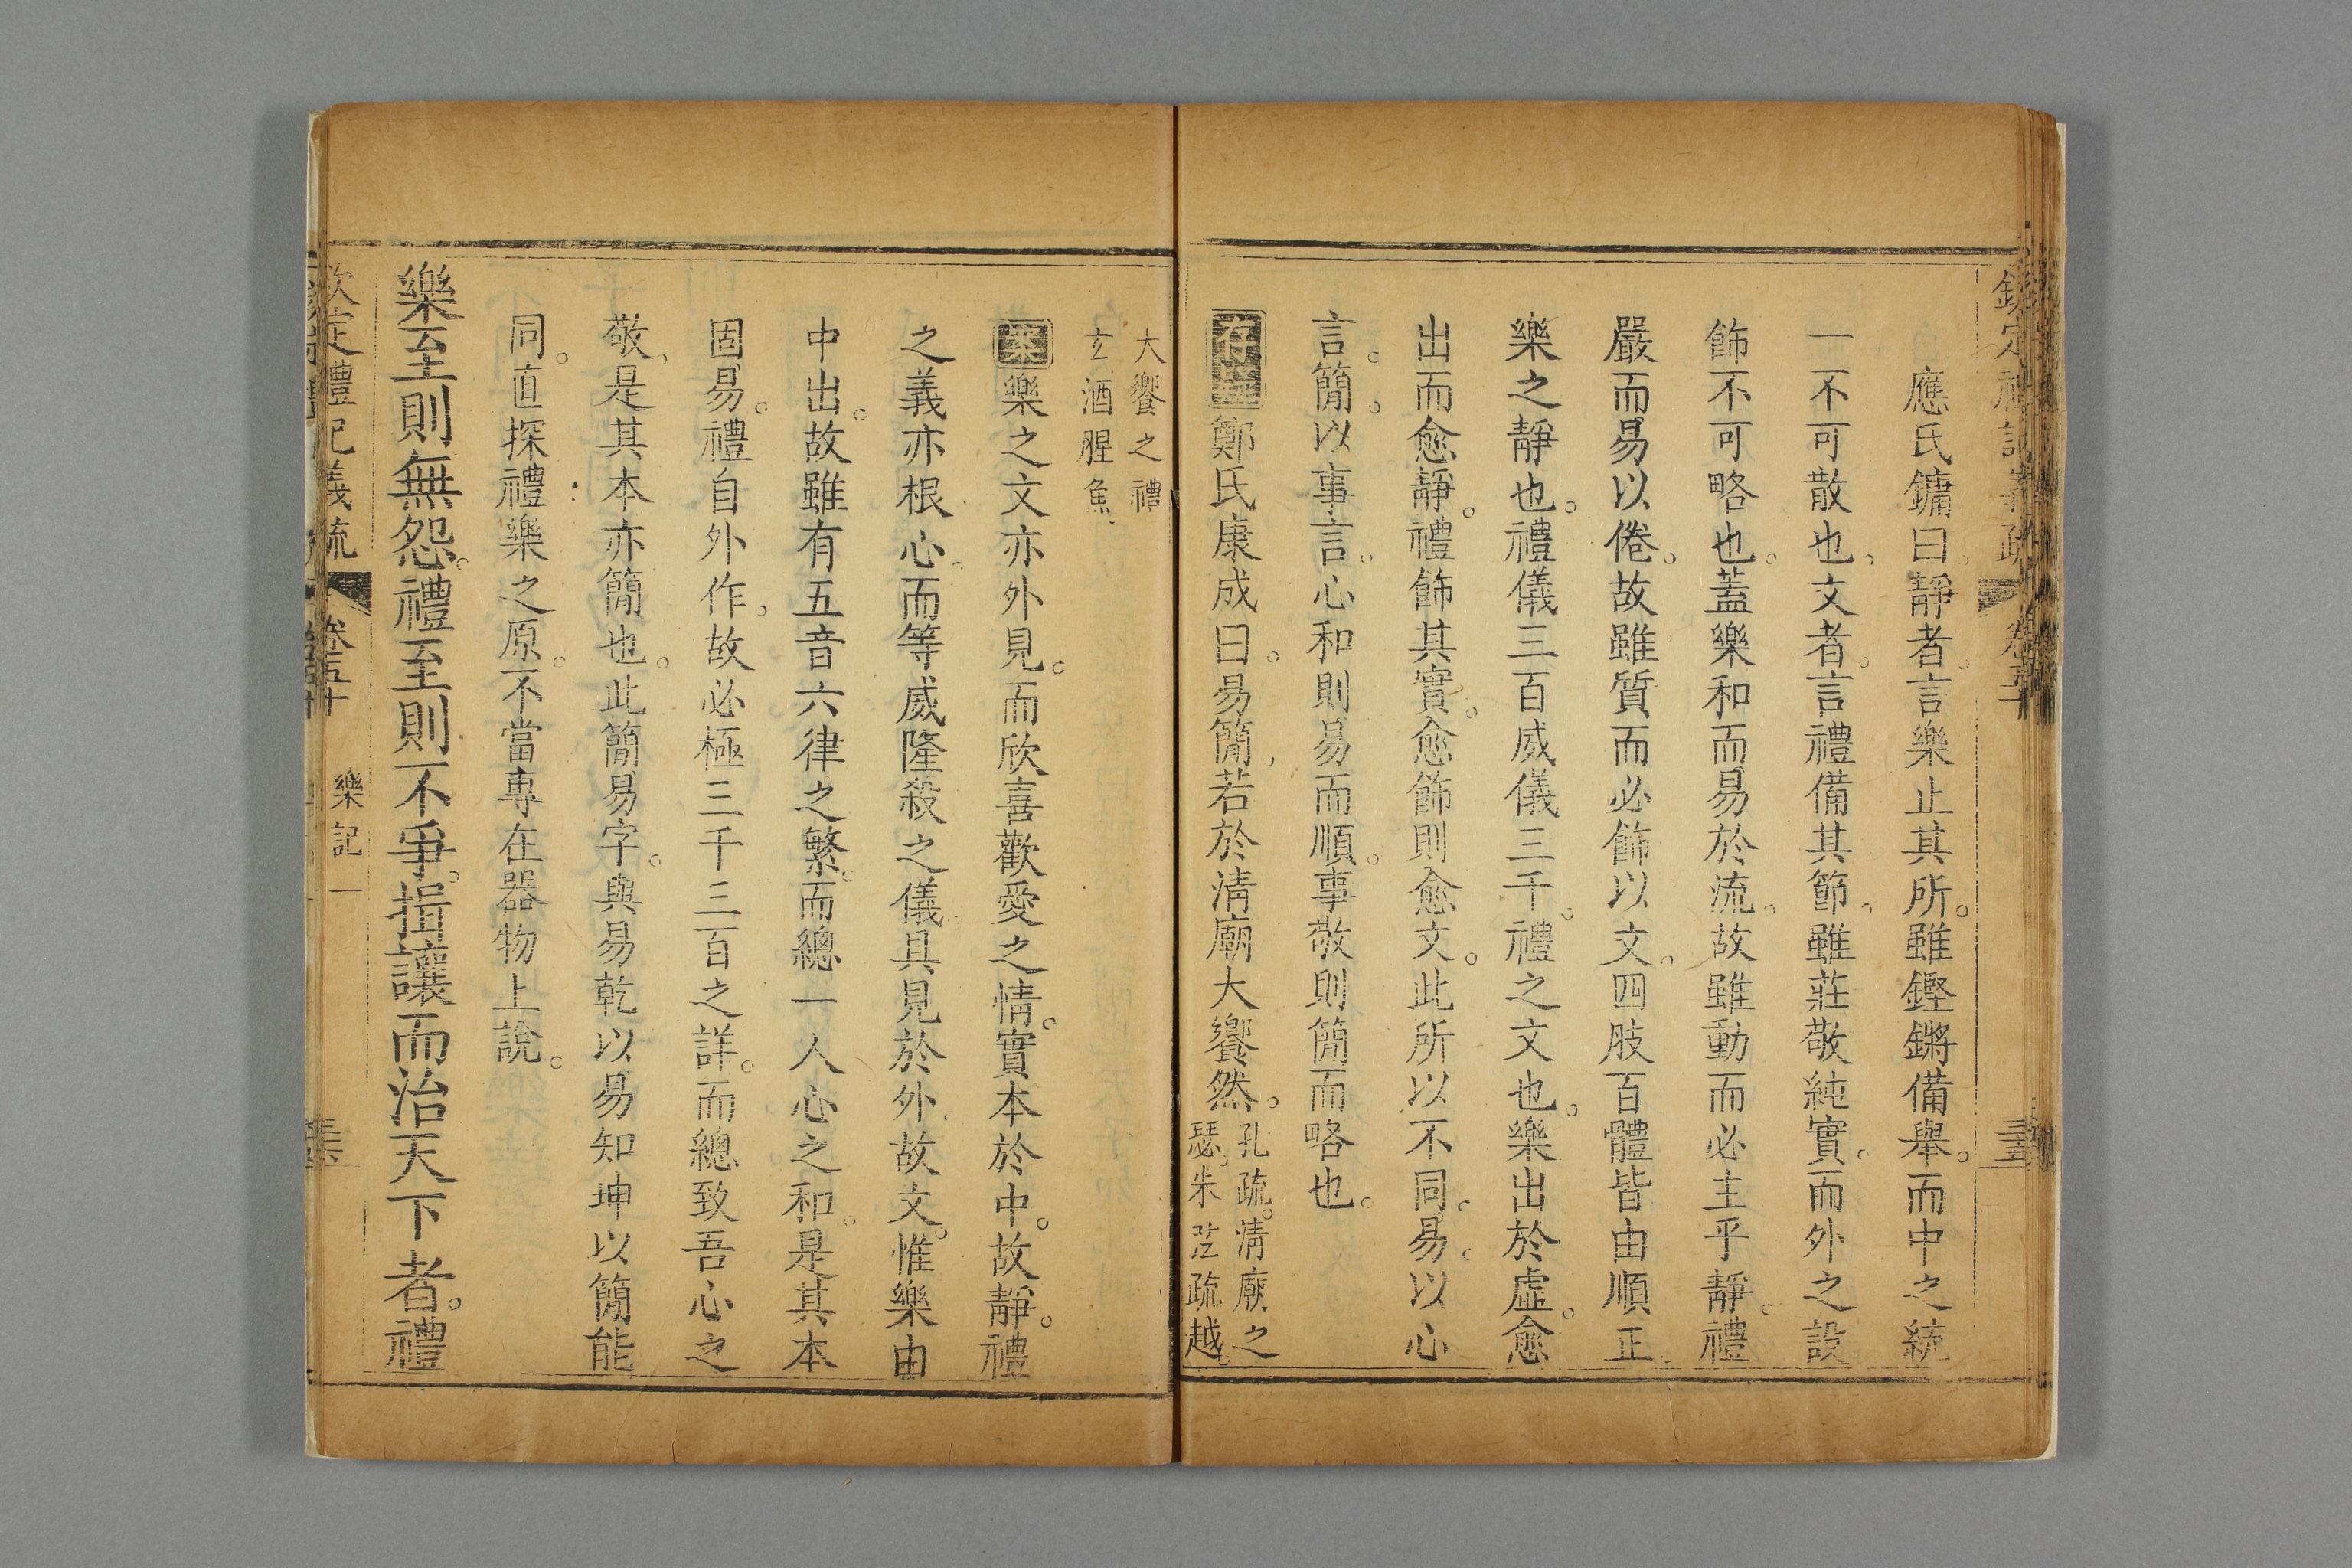 欽定禮記義疏 卷五十 三五
應氏鏞曰。靜者。言樂止其所。雖鏗鏘備舉。而中之統
一不可散也。文者。言禮備其節。雖莊敬純實。而外之設
飾不可略也。蓋樂和而易於流。故雖動而必主乎靜。禮
嚴而易以倦。故雖質而必飾以文。四肢百體皆由順正。
樂之靜也。禮儀三百威儀三千。禮之文也。樂出於虛。愈
出而愈靜。禮飾其實。愈飾則愈文。此所以不同。易。以心
言。簡。以事言。心和則易而順。事敬則簡而略也。
存疑鄭氏康成曰。易簡。若於清廟大饗然。孔疏。清廟之
瑟。朱弦疏越。
大饗之禮
玄酒腥魚
案樂之文亦外見。而欣喜歡愛之情。實本於中。故靜。禮
之義亦根心。而等威隆殺之儀。具見於外。故文。惟樂由
中出。故雖有五音六律之繁。而總一人心之和。是其本
固易。禮自外作。故必極三千三百之詳。而總致吾心之
敬。是其本亦簡也。此簡易字。與易乾以易知坤以簡能
同。直探禮樂之原。不當專在器物上說。
樂至則無怨。禮至則不爭。揖讓而治天下者。禮
欽定禮記義疏 卷五十 樂記一